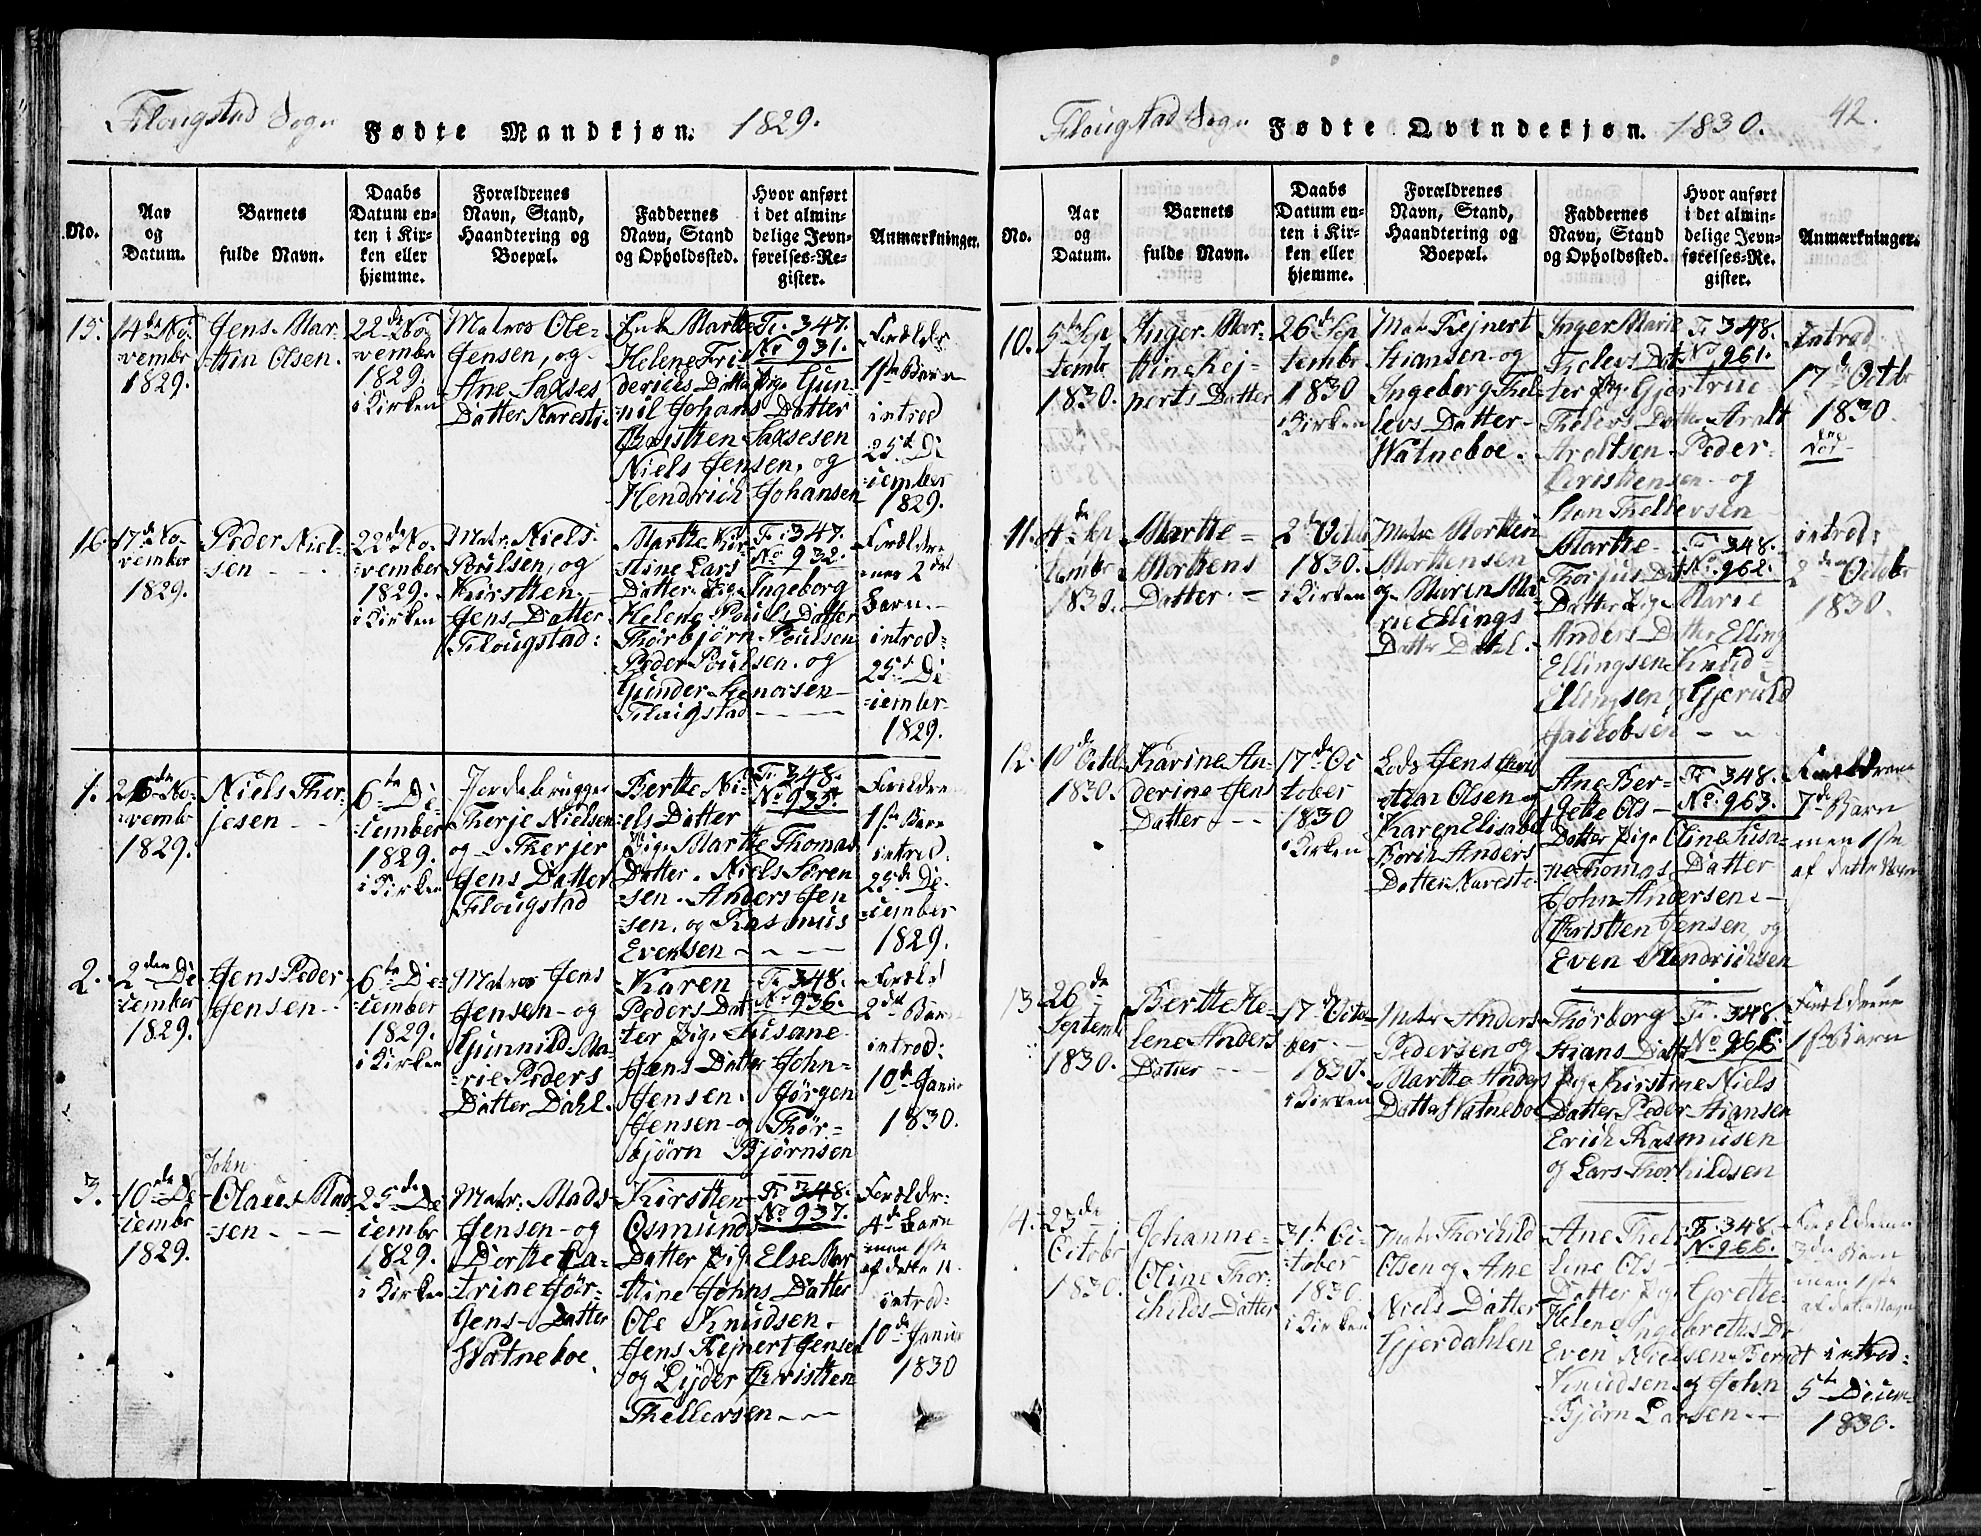 Flougstad Sogn Fødte Mandkjøn. 1829.
No.
Aar
og
Datum.
Barnets
fulde Navn.
Daabs
Datum en-
ten i Kir-
ken eller
hjemme.
Forældrenes
Navn, Stand,
Haandtering og
Boepæl.
Faddernes
Navn, Stand
og Opholdssted.
Hvor anført
i det almin-
delige Jevn-
førelses-Re-
gister.
Anmærkninger.
15.
14de No
vembr
1829.
Jens Mar-
thin Olsen.
22de No
vembr
1829.
i Kirken
Matros Ole
Jensen, og
Ane Saxses
Datter Naresti.
Enk Marthe
Helene Fri-
derices Datter Pige Gun-
nil Johans Datter
Christen Saxsesen
Niels Jensen, og
Hendrich Johansen
Fi. 347.
No 931.
Forældr
1ste Barn
introd
25de De
cember
1829.
16
17de No-
vember
1829.
Peder Niel-
sen
22de No-
vember
1829.
i Kirken
Matr. Niels
Poulsen, og
Kirstten
Jens Datter
Flougstad:
Marthe Kir-
stine Lars
Datter. Pige Ingeborg
Helene Pouls Datter
Thorbjørn Poulsen
Peder Poulsen. og
Gunder
Flougstad
Fi 347.
No 932.
Forældre
nes 2det
Barn.
introd:
25de De
cember
1829.
1.
26de No-
vembr
1829.
Niels Ther-
jesen
6te De-
cember
1829.
i Kirken
Jordebrugger
Therje Nielsen
og Therjer
Jens Datter
Flougstad
Berthe Ni-
els Datter
Pige Marthe Thomas
Datter. Niels Søren
sen. Anders Jen
sen. og Rasmus
Evensen
Fi. 348.
No 935.
Forældre
1ste Barn
introd.
25de De-
cember
1829.
2.
2den De-
cember
1829.
Jens Peder
Jensen
6te De-
cember
1829.
i Kirken
Matros Jens
Jensen og
Gunnild Ma-
rie Peders
Datter Dahl.
Karen
Peders Dat-
ter Pige Susane
Jens Datter John
Jensen. Jørgen
Jensen og Thør-
bjørn Bjørnsen
Fi. 348.
No 936.
Foræld
2det Barn
introd:
10de Janua
1830.
3.
10de De
cembr
1829.
John
Olaus Mad-
sen
25de De
cembr
1829.
i Kirken
Matr: Mads
Jensen og
Dorthe Ca-
trine Jør-
gens Datter
Watneboe.
Kirstten
Osmunds
Datter Pige Else Mar
thine Johns Datter
Ole Knudsen.
Jens Rejnert Jensen
og Lyder Christten
Thellefsen
Fi 348.
No 937.
Forældr:
4de Barn
men 1ste
af dette N.
introd:
10de Janua
1830
Flougstad Sogn Fødte Qvindekjøn. 1830. 42.
No.
Aar
og
Datum.
Barnets
fulde Navn.
Daabs
Datum en-
ten i Kir-
ken eller
hjemme.
Forældrenes
Navn, Stand,
Haandtering og
Boepæl.
Faddernes
Navn, Stand
og Opholdssted.
Hvor anført
i det almin-
delige Jevn-
førelses-Re-
gister.
Anmærkninger.
10.
5te Sep
tembr
1830.
Inger Mar-
thine Rej-
nerts Datter
26de Sep
tembr
1830
i Kirken
Mat Rejnert
Stiansen og
Ingeborg Thel-
levs Datter
Watneboe.
Inger Marie
Thelevs Dat-
ter Pige Gjertrue
Thelevs Datter Aralt
Araltsen Peder
Christensen og
Stian Thellevsen
Fi 348.
No 961.
Introd
17de Octb
1830.
11.
4de Sep
tembr
1830.
Marthe
Morttens
Datter
2de Octob
1830.
i Kirken
Matr Mortten
Morttensen
og Maren Ma-
rie Ellings
Datter Dahl.
Marthe
Thorjus Dat
Datter Pige Marie
Anders Datter Elling
Ellingsen Knud
Ellingsen og Gjeruld
Jacobsen
Fi 348.
No 962.
introd:
2den Octobr
1830.
12.
10de Octb
1830.
Karine An-
derine Jens
Datter
17de Oc
tober
1830
i Kirken
Lods Jens Chris
tian Olsen og
Karen Elisabet
Borich Anders
Datter Nareste
Ane Ber-
gette Ols
Datter Pige Oline Susa-
ne Tomas Datter
John Andersen.
Christten Jensen, og
Even Hendrichsen
Fi 348.
No 963.
Forældrene
7de Barn
men 1ste
af dette Navn
13
26de
Septemb
1830.
Berthe He-
lene Anders
Datter
17de Octo-
ber
1830.
i Kirken
Matr Anders
Pedersen og
Marthe Anders
Datter Watneboe
Thørborg
Stians Datter
Pige Kirstine Niels
Datter Peder Stiansen
Erich Rasmusen
og Lars Thorkildsen
Fi 348.
No 965.
Forældrene
1ste Barn
14.
23de
Octobr
1830.
Johanne
Oline Thor-
childs Datter
31te Oc-
tober
1830.
i Kirken
Matr Thorchild
Olsen og Ane
Niels Datter
Gjerdahlen
Ane Thel
line Ols
Datter Pige Grethe
Helene Ingebreths Dr
Even Nielsen Berndt
Knudsen og John
Bjørn Larsen
Fi. 348.
No. 966.
Forældrene
3die Barn
men 1ste
af dette Navn
introd:
5te Decem
1830.